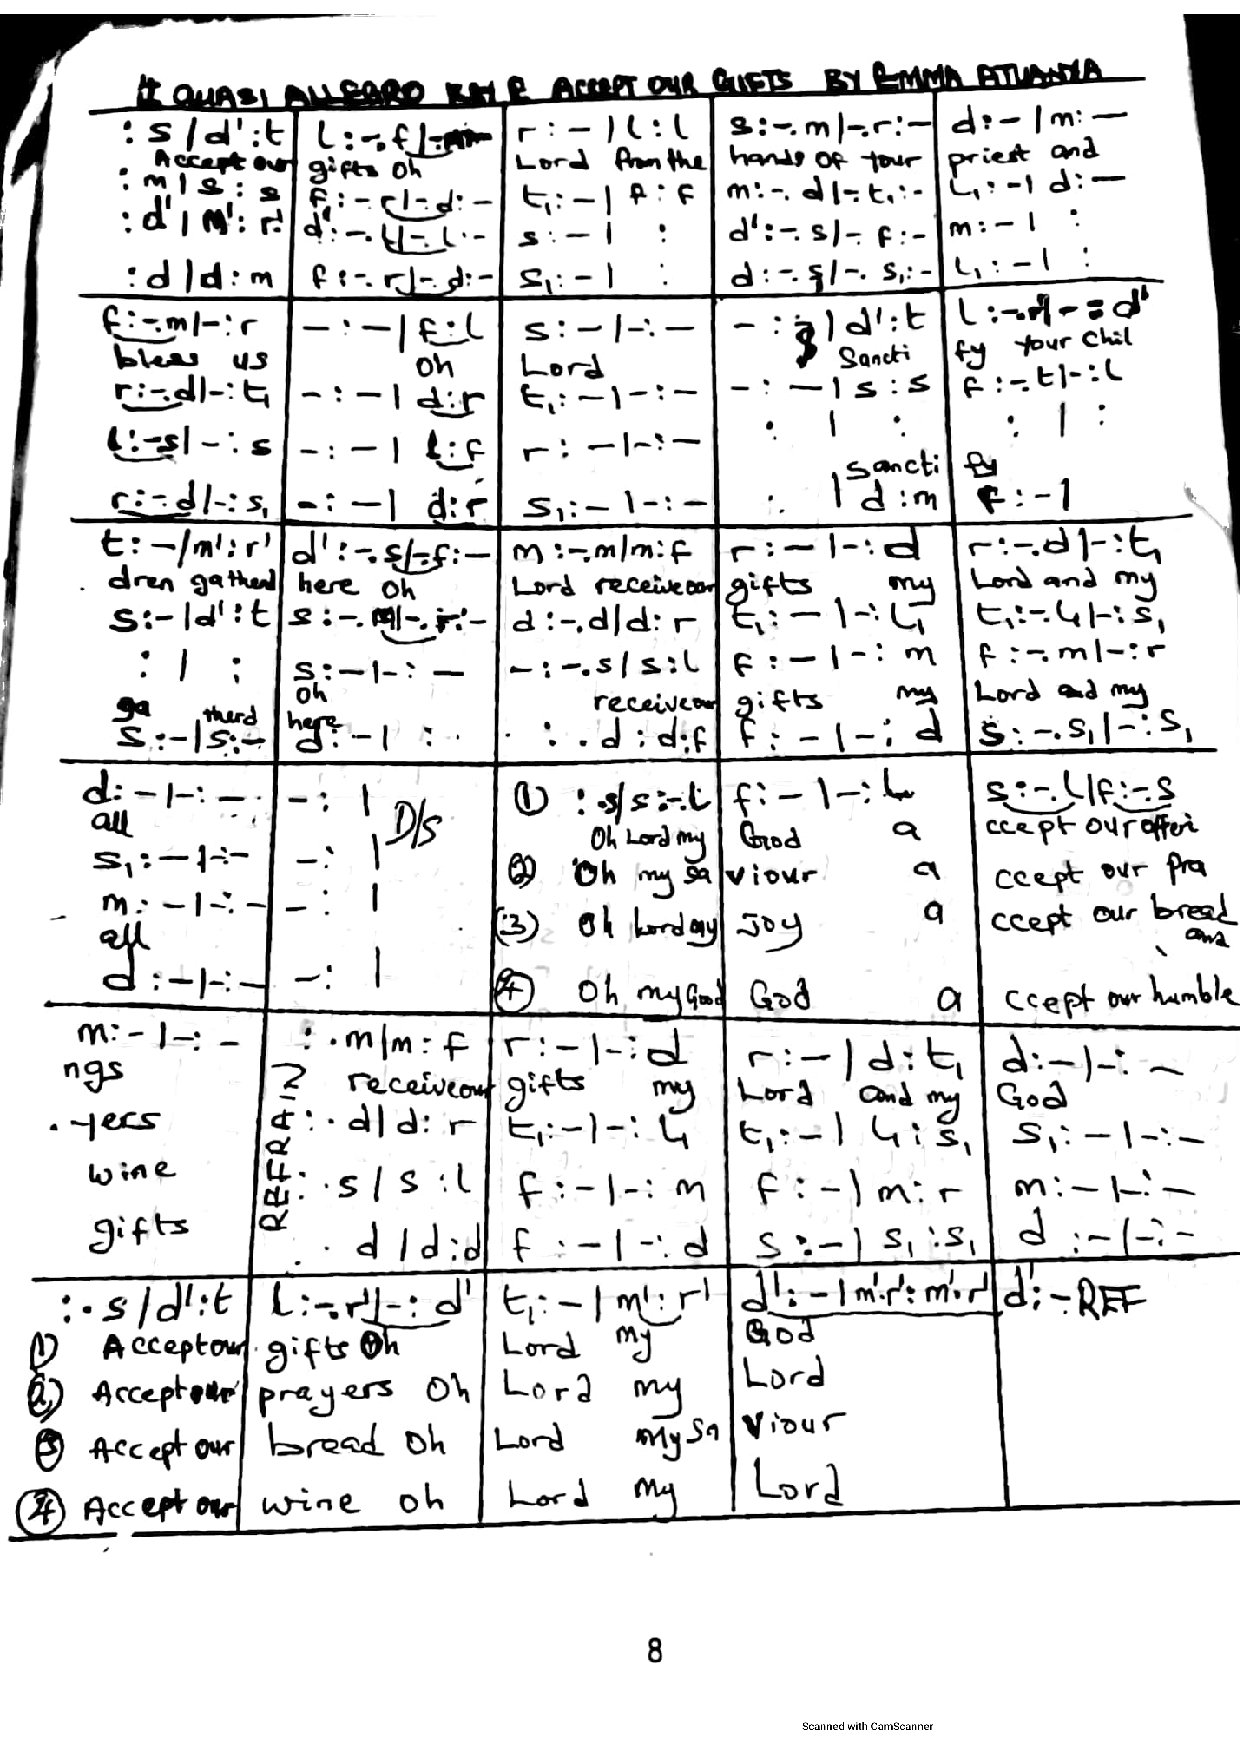 QUASI ALLEGRO KEY E ACCEPT OUR GIFTS BY EMMA
: s / d' : t l : -. f / r : - | l : l s : -. m | -. r : - d : - | m : -
Accept our gifts oh Lord from the hands of your priest and
: m | s : s f : -. r | - d : - t₁ : - | f : f m : -. d | -. t₁ : - l₁ : - | d : -
: d' | m' : r' d' : -. t | -. l : - s : - | : d' : -. s | -. f : - m : - | :
: d | d : m f : -. r | -. d : - s₁ : - | : d : -. s | -. s₁ : - l₁ : - | :
f : -. m | - : r - : - | f : l s : - | - : - - : | d' : t l : -. r' | - : d'
bless us oh Lord Sancti fy your chil
r : -. d | - : t₁ - : - | d : r t₁ : - | - : - - : - | s : s f : -. t | - : l
l : -. s | - : s - : - | l : f r : - | - : - : | : : | :
sancti fy
r : -. d | - : s₁ - : - | d : r s₁ : - | - : - : | d : m f : - |
t : - / m' : r' d' : -. s | -. f : - m : -. m / m : f r : - | - : d r : -. d | - : t₁
dren gatherd here oh Lord receive our gifts my Lord and my
s : - | d' : t s : -. m | -. r : - d : -. d | d : r t₁ : - | - : l₁ t₁ : -. l₁ | - : s₁
: | : s : - | - : - - : -. s | s : l f : - | - : m f : -. m | - : r
ga therd here oh receive our gifts my Lord and my
s : - | s : - d : - | : : . d : d : f f : - | - : d s : -. s₁ | - : s₁
d : - | - : - - : | D/S ① : . s / s : -. l f : - | - : l₁ s : -. l | f : -. s
all Oh Lord my God a ccept our offeri
s₁ : - | - : - - : | ② Oh my sa viour a ccept our pra
m : - | - : - - : | (3) Oh Lord my Joy a ccept our bread and
all
d : - | - : - - : | ④ Oh my Good God a ccept our humble
m : - | - : - REFRAIN : . m | m : f r : - | - : d r : - | d : t₁ d : - | - : -
ngs receive our gifts my Lord and my God
yers : . d | d : r t₁ : - | - : l₁ t₁ : - | l₁ : s₁ s₁ : - | - : -
wine : . s / s : l f : - | - : m f : - | m : r m : - | - : -
gifts . d / d : d f : - | - : d s : - | s₁ : s₁ d : - | - : -
: . s / d' : t l : -. r' | - : d' t₁ : - | m' : r' d' : - | m'. r' : m'. r' d' : - REF
① Accept our gifts Oh Lord my God
② Accept our prayers Oh Lord my Lord
③ Accept our bread Oh Lord my Sa viour
④ Accept our wine oh Lord my Lord
8
Scanned with CamScanner